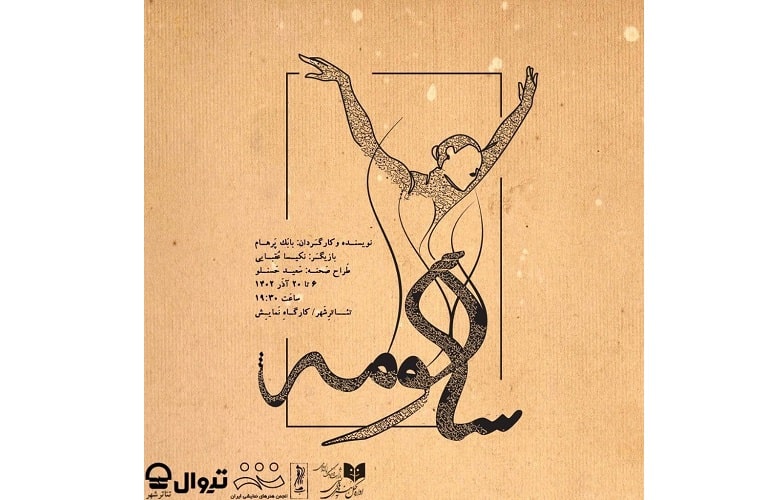 نویسنده و کارگردان: بابک پرهام
بازیگر: نکیسا عقبایی
طراح صحنه: سعید حسنلو
۶ تا ۲۰ آذر ۱۴۰۲
ساعت ۱۹:۳۰
تئاترشهر/ کارگاه نمایش
سالومه
تئاتر شهر
تیوال
انجمن هنرهای نمایشی ایران